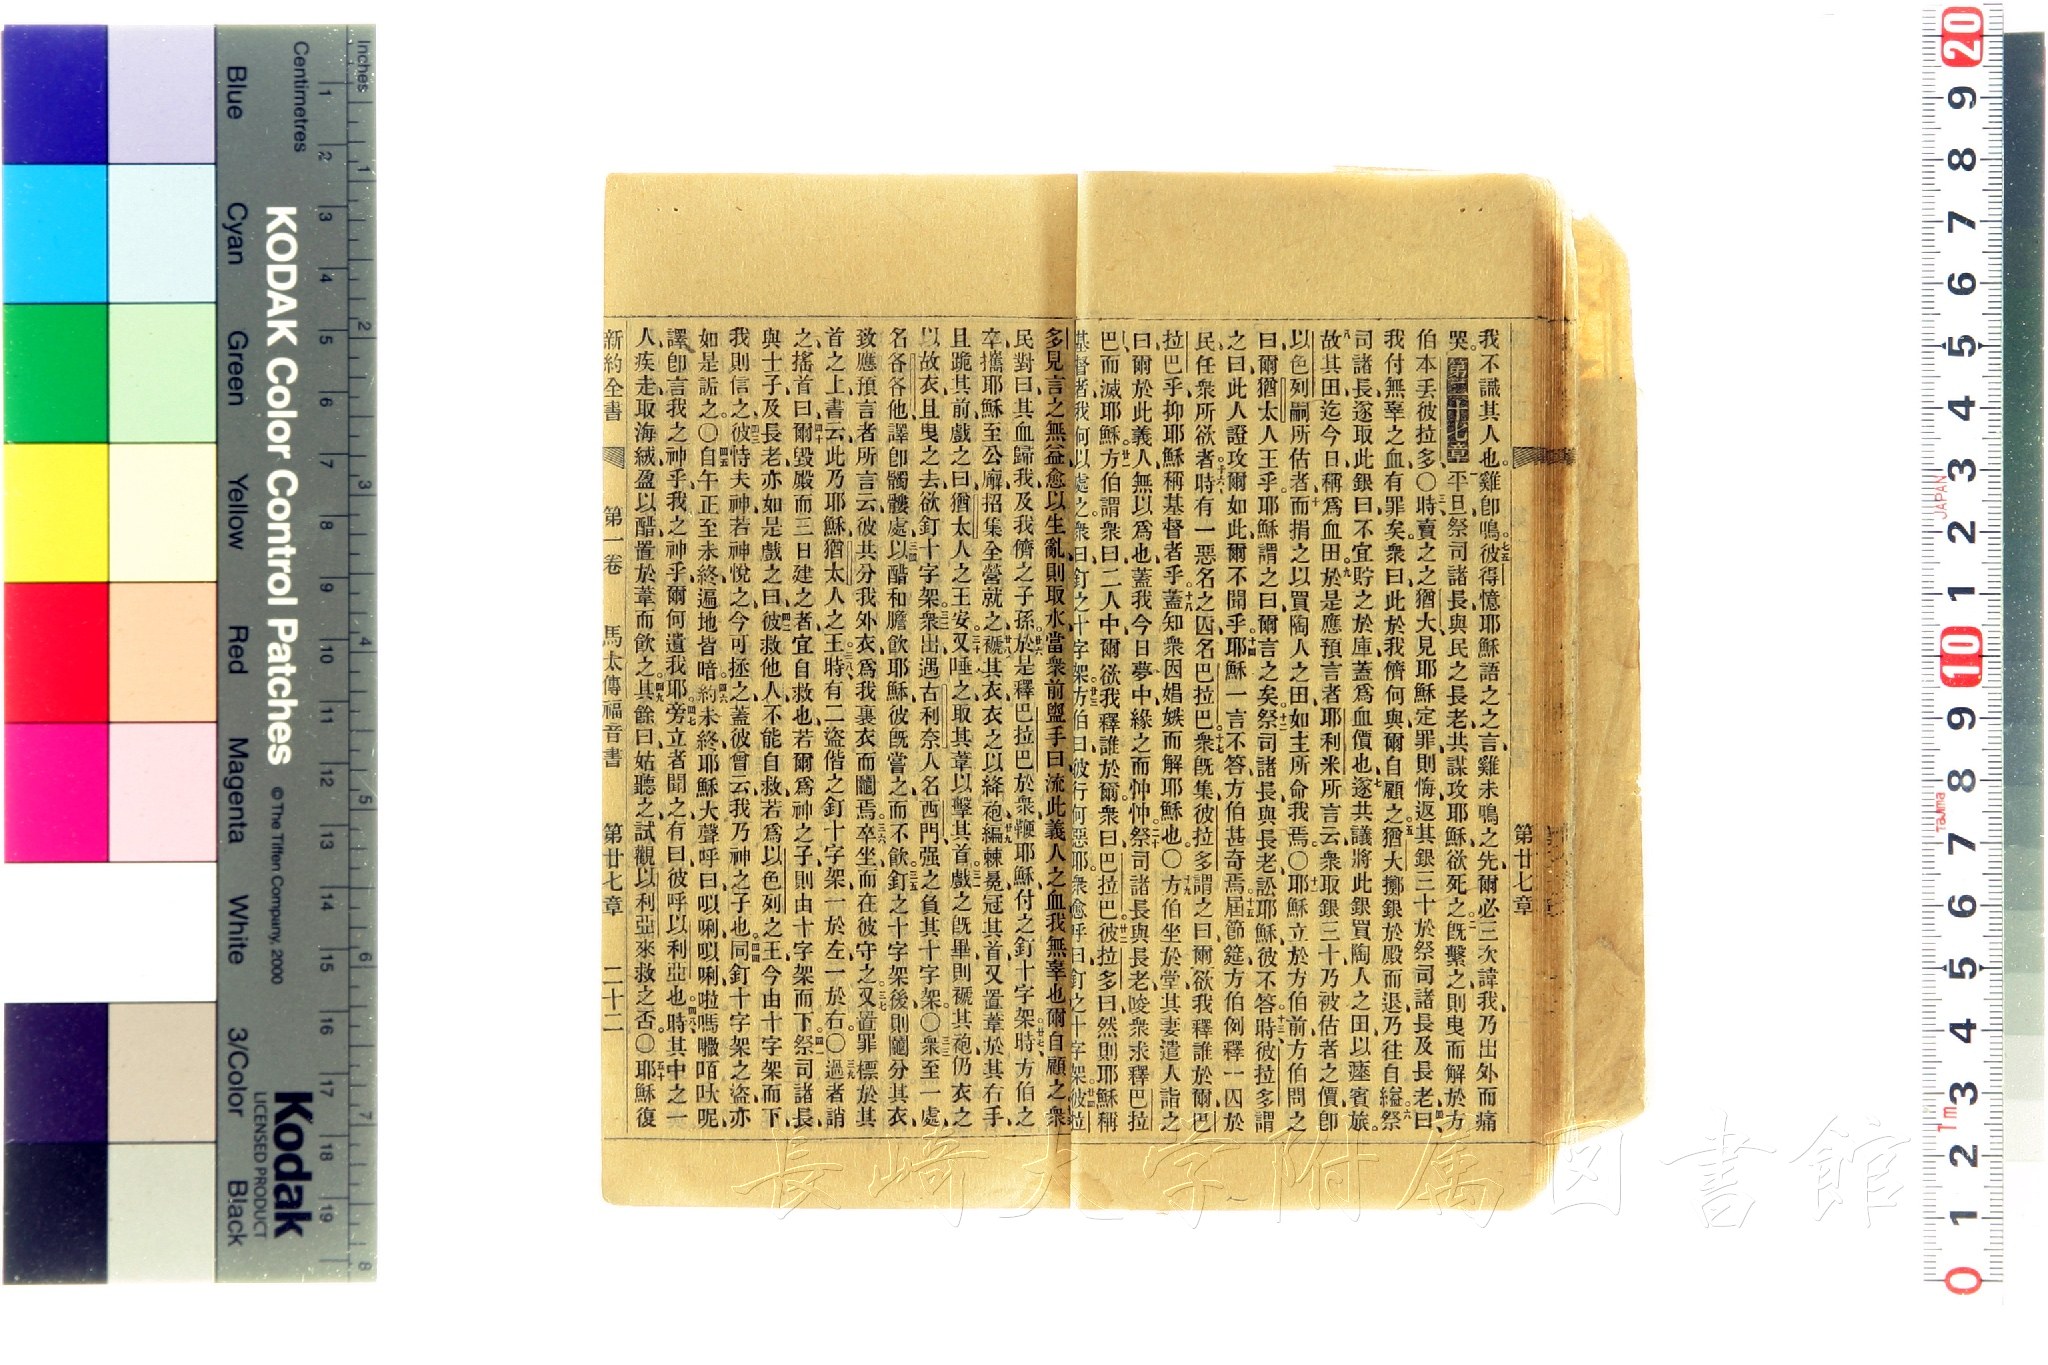 第廿七章
我不識其人也雞卽鳴彼得憶耶穌語之之言雞未鳴之先爾必三次諱我乃出外而痛
哭第二十七章平旦祭司諸長與民之長老共謀攻耶穌欲死之旣繫之則曳而解於方
伯本丢彼拉多〇時賣之之猶大見耶穌定罪則悔返其銀三十於祭司諸長及長老曰
我付無辜之血有罪矣衆曰此於我儕何與爾自顧之猶大擲銀於殿而退乃往自縊祭
司諸長遂取此銀曰不宜貯之於庫蓋爲血價也遂共議將此銀買陶人之田以瘞賓旅
故其田迄今日稱爲血田於是應預言者耶利米所言云衆取銀三十乃被估者之價卽
以色列嗣所估者而捐之以買陶人之田如主所命我焉〇耶穌立於方伯前方伯問之
曰爾猶太人王乎耶穌謂之曰爾言之矣祭司諸長與長老訟耶穌彼不答時彼拉多謂
之曰此人證攻爾如此爾不聞乎耶穌一言不答方伯甚奇焉屆節筵方伯例釋一囚於
民任衆所欲者時有一惡名之囚名巴拉巴衆旣集彼拉多謂之曰爾欲我釋誰於爾巴
拉巴乎抑耶穌稱基督者乎蓋知衆因娼嫉而解耶穌也〇方伯坐於堂其妻遣人詣之
曰爾於此義人無以爲也蓋我今日夢中緣之而忡忡祭司諸長與長老唆衆求釋巴拉
巴而滅耶穌方伯謂衆曰二人中爾欲我釋誰於爾衆曰巴拉巴彼拉多曰然則耶穌稱
基督者我何以處之衆曰釘之十字架方伯曰彼行何惡耶衆愈呼曰釘之十字架彼拉
多見言之無益愈以生亂則取水當衆前盥手曰流此義人之血我無辜也爾自顧之衆
民對曰其血歸我及我儕之子孫於是釋巴拉巴於衆鞭耶穌付之釘十字架時方伯之
卒攜耶穌至公廨招集全營就之褫其衣衣之以絳袍編棘冕冠其首又置葦於其右手
且跪其前戲之曰猶太人之王安又唾之取其葦以擊其首戲之旣畢則褫其袍仍衣之
以故衣且曳之去欲釘十字架衆出遇古利奈人名西門强之負其十字架〇衆至一處
名各各他譯卽髑髏處以醋和膽飲耶穌彼旣嘗之而不飲釘之十字架後則鬮分其衣
致應預言者所言云彼共分我外衣爲我裏衣而鬮焉卒坐而在彼守之又置罪標於其
首之上書云此乃耶穌猶太人之王時有二盜偕之釘十字架一於左一於右〇過者誚
之搖首曰爾毀殿而三日建之者宜自救也若爾爲神之子則由十字架而下祭司諸長
與士子及長老亦如是戲之曰彼救他人不能自救若爲以色列之王今由十字架而下
我則信之彼恃夫神若神悅之今可拯之蓋彼曾云我乃神之子也同釘十字架之盜亦
如是詬之〇自午正至未終遍地皆暗約未終耶穌大聲呼曰㕥唎㕥唎啦嗎𠿕咟吠呢
譯卽言我之神乎我之神乎爾何遺我耶旁立者聞之有曰彼呼以利亞也時其中之一
人疾走取海絨盈以醋置於葦而飲之其餘曰姑聽之試觀以利亞來救之否〇耶穌復
新約全書 第一卷 馬太傳福音書 第廿七章 二十二
長崎大学附属図書館
Inches
Centimetres
Blue Cyan Green Yellow Red Magenta White 3/Color Black
KODAK Color Control Patches © The Tiffen Company, 2000
Kodak
LICENSED PRODUCT
JAPAN
Tajima
Tm